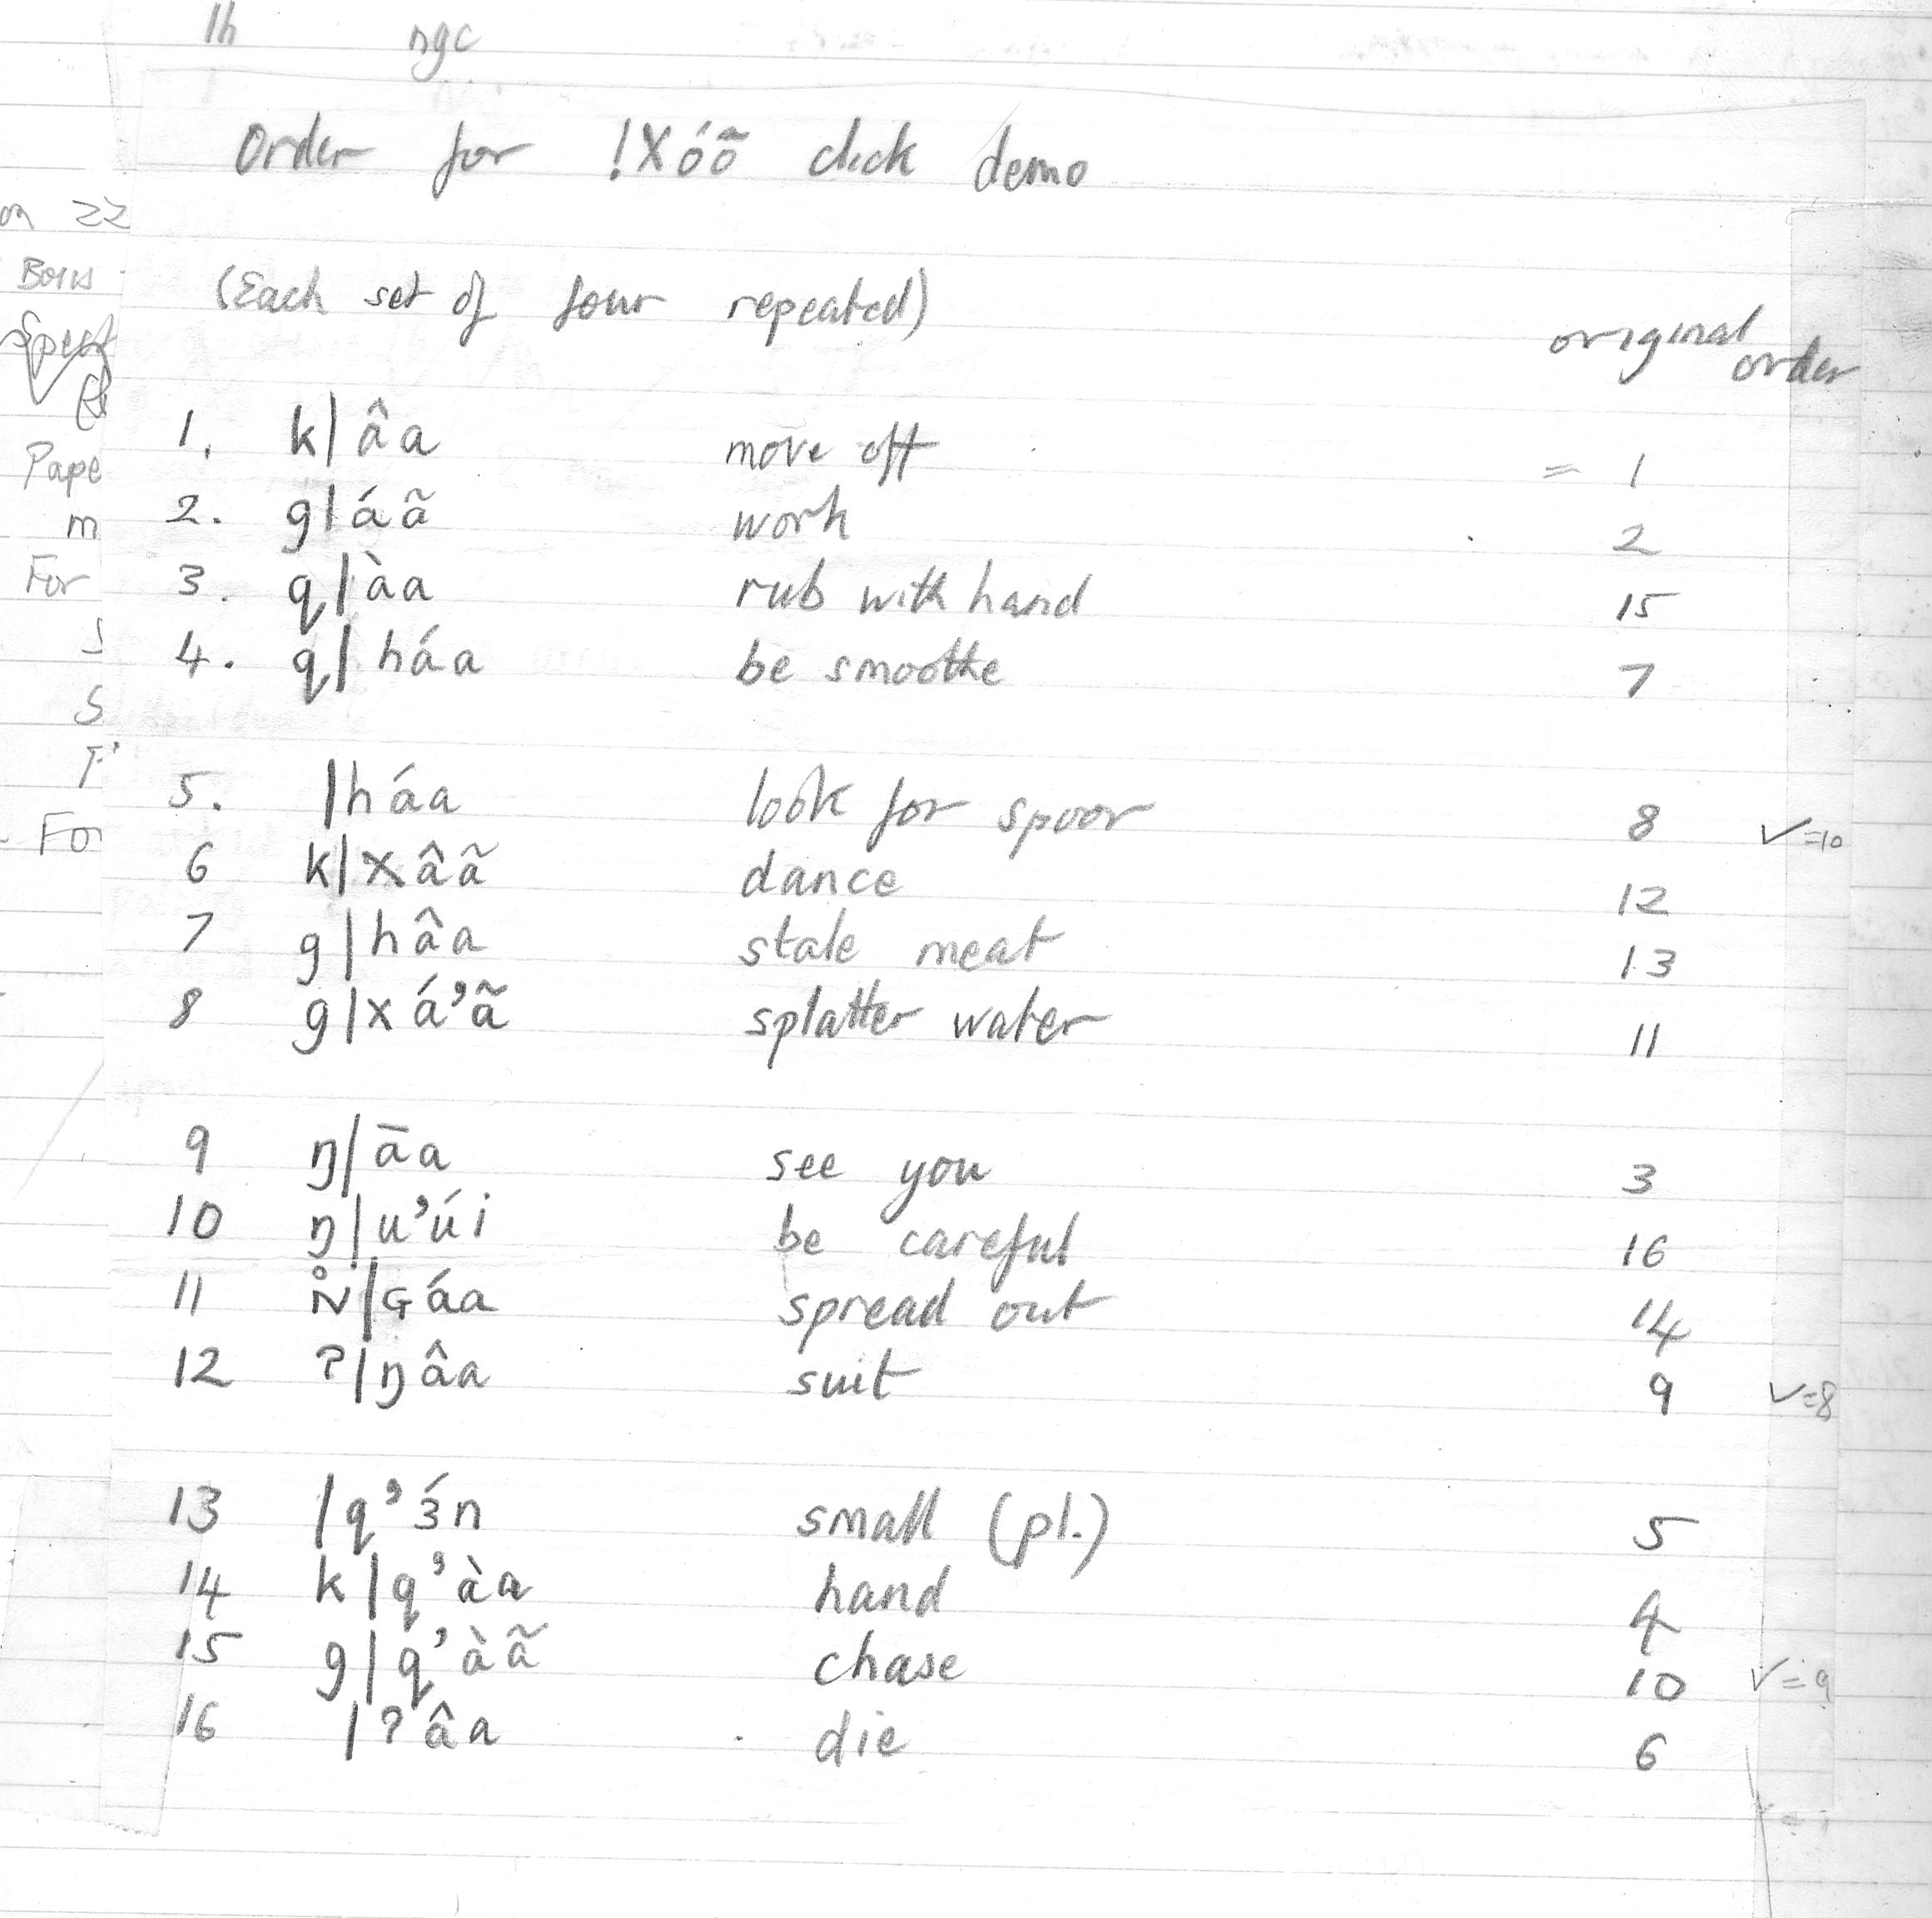 lh ngc
Order for !Xóõ click demo
on 22
(Each set of four repeated)
original order
1. k|âa move off = 1
2. g|áã work 2
3. q|àa rub with hand 15
4. q|háa be smoothe 7
5. |háa look for spoor 8 ✓=10
6 k|xâã dance 12
7 g|hâa stale meat 13
8 g|xá'ã splatter water 11
9 ŋ|āa see you 3
10 ŋ|u'úi be careful 16
11 N̊|Gáa spread out 14
12 ʔ|ŋâa suit 9 ✓=8
13 |q'ɜ́n small (pl.) 5
14 k|q'àa hand 4
15 g|q'àã chase 10 ✓=9
16 |ʔâa die 6
Pape
m
For
S
For